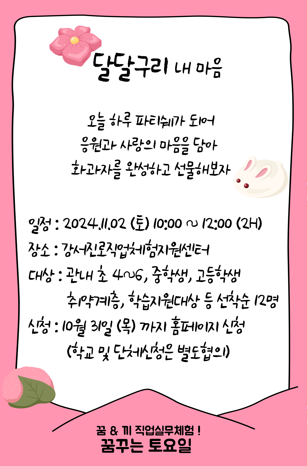 달달구리 내 마음
오늘 하루 파티쉐가 되어
응원과 사랑의 마음을 담아
화과자를 완성하고 선물해보자
일정 : 2024.11.02 (토) 10:00 ~ 12:00 (2H)
장소 : 강서진로직업체험지원센터
대상 : 관내 초 4~6, 중학생, 고등학생
취약계층, 학습지원대상 등 선착순 12명
신청 : 10월 31일 (목) 까지 홈페이지 신청
(학교 및 단체신청은 별도협의)
꿈 & 끼 직업실무체험 !
꿈꾸는 토요일